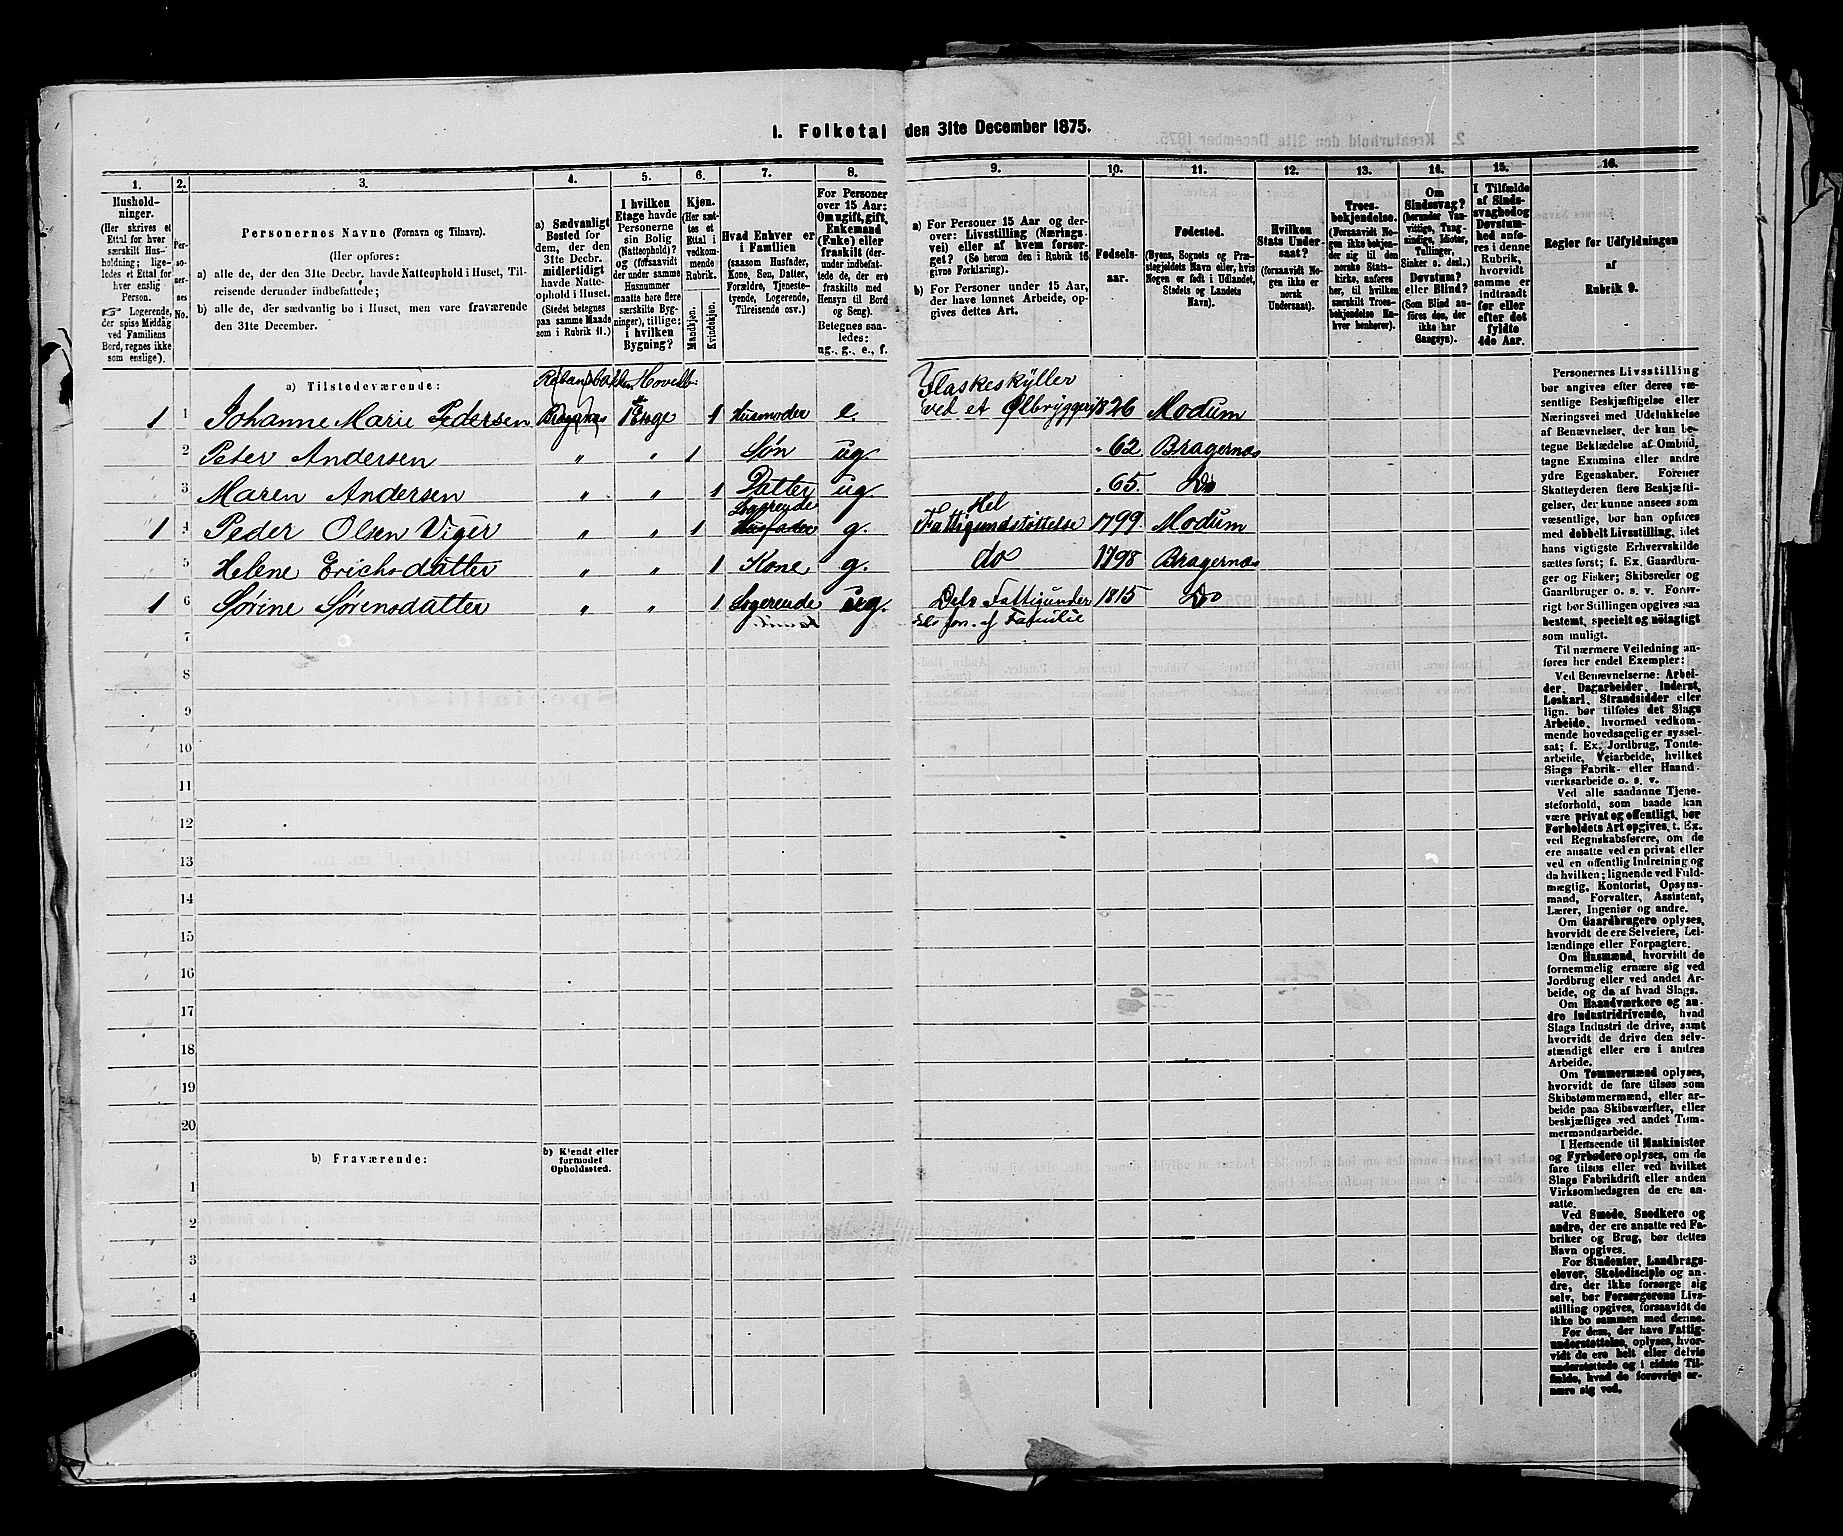 1. Folketal den 31te December 1875.
1. 2. 3. 4. 5. 6. 7. 8. 9. 10. 11. 12. 13. 14. 15. 16.
Husholdninger.
(Her skrives et
Ettal for hver
særskilt Husholdning; ligeledes et Ettal for
hver enslig
Person.
☞ Logerende,
der spise Middag
ved Familiens
Bord, regnes ikke
som enslige).
Personernes No.
Personernes Navne (Fornavn og Tilnavn).
(Her opføres:
a) alle de, der den 31te Decbr. havde Natteophold i Huset, Tilreisende derunder indbefattede;
b) alle de, der sædvanlig bo i Huset, men vare fraværende
den 31te December.
a) Sædvanligt
Bosted for
dem, der den
31te Decbr.
midlertidigt
havde Natteophold i Huset.
(Stedet betegnes
paa samme Maade
som i Rubrik 11.)
I hvilken
Etage havde
Personerne
sin Bolig
(Natteophold)?
og (forsaavidt
der under samme
Husnummer
maatte høre flere
særskilte Bygninger), tillige:
i hvilken
Bygning?
Kjøn.
(Her sættes et
Ettal i
vedkommende
Rubrik.
Mandkjøn.
Kvindekjøn.
Hvad Enhver er
i Familien
(saasom Husfader,
Kone, Søn, Datter,
Forældre, Tjenestetyende, Logerende,
Tilreisende osv.)
For Personer
over 15 Aar:
Om ugift, gift,
Enkemand
(Enke) eller
fraskilt (derunder indbefattede de, der ere
fraskilte med
Hensyn til Bord
og Seng).
Betegnes saaledes:
ug., g., e., f.
a) For Personer 15 Aar og derover: Livsstilling (Næringsvei) eller af hvem forsørget? (Se herom den i Rubrik 16
givne Forklaring).
b) For Personer under 15 Aar,
der have lønnet Arbeide, opgives dettes Art.
Fødselsaar.
Fødested.
(Byens, Sognets og Præstegjeldets Navn eller, hvis
Nogen er født i Udlandet,
Stedets og Landets
Navn).
Hvilken
Stats Undersaat?
(forsaavidt Nogen ikke er
norsk
Undersaat).
Troesbekjendelse.
(Forsaavidt Nogen ikke bekjender sig til
den norske Statskirke, anføres
her, til hvilken
særskilt Troesbekjendelse Enhver henhører).
Om
Sindssvag?
(herunder Vanvittige, Tungsindige, Idioter,
Tullinger,
Sinker o. desl.)
Døvstum?
eller Blind?
(Som Blind anføres den, der
ikke har
Gangsyn).
I Tilfælde
af Sindssvaghed og
Døvstumhed anføres i denne
Rubrik,
hvorvidt
samme er
indtraadt
før eller
efter det
fyldte
4de Aar.
Regler for Udfyldningen
af
Rubrik 9.
a) Tilstedeværende:
Hovedb.
1 1 Johanne Marie Pedersen Bragernæs 1ste Etage 1 Husmoder e. Flaskeskyller ved et Ølbryggeri 1826 Modum
2 Peter Andersen " " 1 Søn ug " 62 Bragernæs
3 Maren Andersen " " 1 Datter ug " 65. Do
1 4 Peder Olsen Viger " " 1 Logerende Husfader g. Hel Fattigundstøttelse 1799 Modum
5 Helene Erichsdatter " " 1 Kone g. do 1798 Bragernæs
1 6 Sørine Sørensdatter " " 1 Logerende ug. Dels Fattigunder dels for. af Familie 1815 Do
7
8
9
10
11
12
13
14
15
16
17
18
19
20
b) Fraværende:
b) Kjendt eller
formodet
Opholdssted.
1
2
3
4
5
6
Personernes Livsstilling
bør angives efter deres væsentlige Beskjæftigelse eller
Næringsvei med Udelukkelse
af Benævnelser, der kun betegne Beklædelse af Ombud,
tagne Examina eller andre
ydre Egenskaber. Forener
Skatteyderen flere Beskjæftigelser, der kunne ansees som
væsentlige, bør han opføres
med dobbelt Livsstilling, idet
hans vigtigste Erhvervskilde
sættes først; f. Ex. Gaardbruger og Fisker; Skibsreder og
Gaardbruger o. s. v. Forøvrigt bør Stillingen opgives saa
bestemt, specielt og nøiagtigt
som muligt.
Til nærmere Veiledning anføres her endel Exempler:
Ved Benævnelserne: Arbeider, Dagarbeider, Inderst,
Løskarl, Strandsidder eller
lign. bør tilføies det Slags
Arbeide, hvormed vedkommende hovedsagelig er sysselsat; f. Ex. Jordbrug, Tomtearbeide, Veiarbeide, hvilket
Slags Fabrik- eller Haandværksarbeide o. s. v.
Ved alle saadanne Tjenesteforhold, som baade kan
være privat og offentligt, bør
Forholdets Art opgives, t. Ex.
ved Regnskabsførere, om de
ere ansatte ved en privat eller
ved en offentlig Indretning og
da hvilken; lignende ved Fuldmægtig, Kontorist, Opsynsmand, Forvalter, Assistent,
Lærer, Ingeniør og andre.
Om Gaardbrugere oplyses,
hvorvidt de ere Selveiere, Leilændinge eller Forpagtere.
Om Husmænd, hvorvidt de
fornemmelig ernære sig ved
Jordbrug eller ved andet Arbeide, og da af hvad Slags.
Om Haandværkere og andre Industridrivende, hvad
Slags Industri de drive, samt
hvorvidt de drive den selvstændigt eller ere i andres
Arbeide.
Om Tømmermænd oplyses,
hvorvidt de fare tilsøs som
Skibstømmermænd, eller arbeide paa Skibsværfter, eller
beskjæftiges ved andet Tømmermandsarbeide.
I Henseende til Maskinister
og Fyrbødere oplyses, om de
fare tilsøs eller ved hvilket
Slags Fabrikdrift eller anden
Virksomhedsgren de ere ansatte.
Ved Smede, Snedkere og
andre, der ere ansatte ved Fabriker og Brug, bør dettes
Navn opgives.
For Studenter, Landbrugselever, Skoledisciple og andre, der ikke forsørge sig
selv, bør Forsørgerens Livsstilling opgives, forsaavidt de
ikke bo sammen med denne.
For dem, der have Fattigunderstøttelse, oplyses, hvorvidt de ere helt eller delvis
understøttede og i sidste Tilfælde, hvad de forøvrigt ernære sig ved.